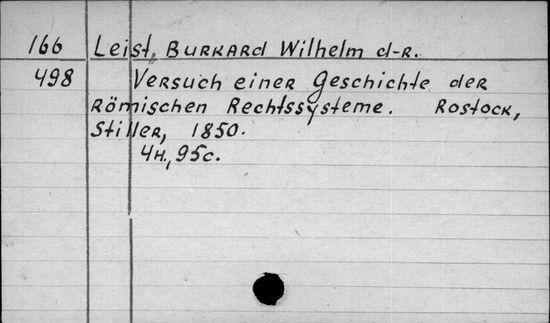 166 Leist, Burkard Wilhelm d-r.
498 Versuch einer Geschichte der
Römischen Rechtssysteme. Rostock,
Stiller, 1850.
4H., 95c.